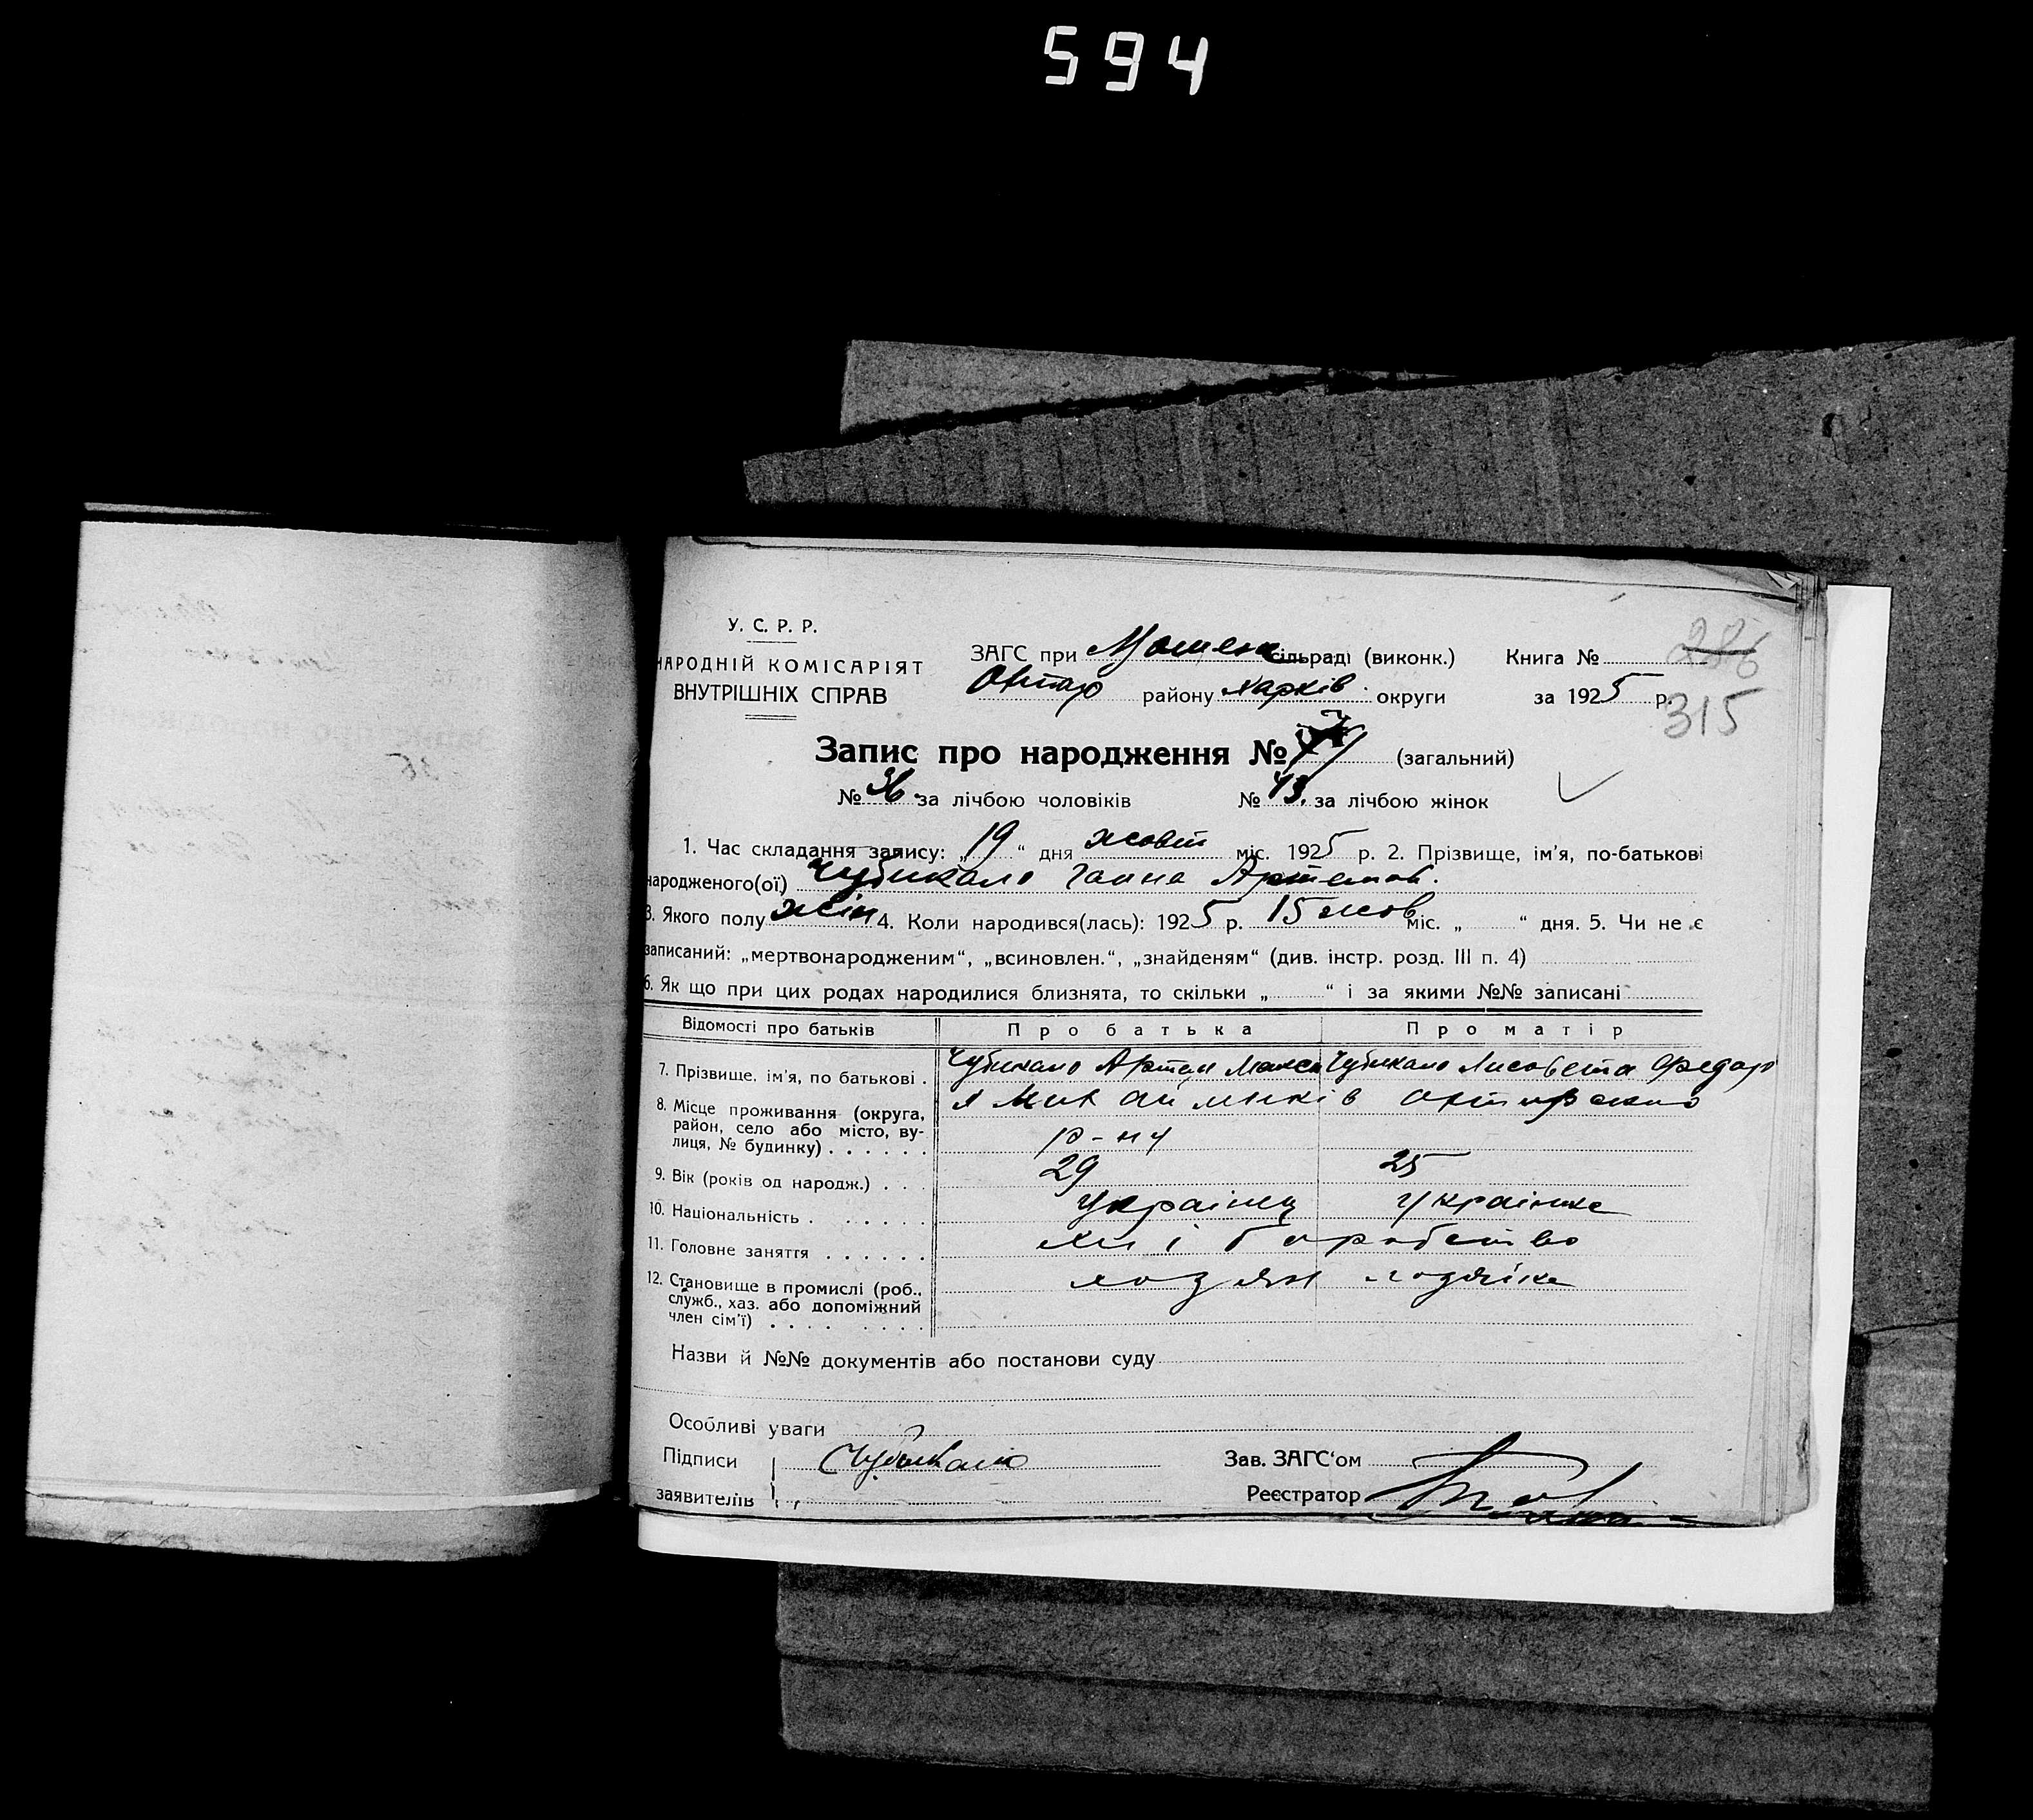 594
У. С. Р. Р.
НАРОДНІЙ КОМІСАРІЯТ
ВНУТРІШНІХ СПРАВ
ЗАГС при сільраді (виконк.) Книга № 286
району Харків. округи за 1925 р.
315
Запис про народження № (загальний)
№ 36. за лічбою чоловіків № 43. за лічбою жінок
1. Час складання запису: „19“ дня жовт міс. 1925 р. 2. Прізвище, ім'я, по-батькові
народженого(ої) Чубикало Ганна Артемов.
3. Якого полу жін 4. Коли народився(лась): 1925 р. 15 жов міс. „ “ дня. 5. Чи не є
записаний: „мертвонародженим“, „всиновлен.“, „знайденям“ (див. інстр. розд. III п. 4)
6. Як що при цих родах народилися близнята, то скільки „ “ і за якими №№ записані
Відомості про батьків Про батька Про матір
7. Прізвище, ім'я, по батькові . Чубикало Артем Макси Чубикало Лисовета Федор
8. Місце проживання (округа,
район, село або місто, ву-
лиця, № будинку) . . . . . . р-ну
9. Вік (років од народж.) . . . 29 25
10. Національність . . . . . . Українец Українка
11. Головне заняття . . . . . . хлі боробство
12. Становище в промислі (роб.,
служб., хаз. або допоміжний
член сім'ї) . . . . . . . . хозяін хозяйка
Назви й №№ документів або постанови суду
Особливі уваги
Підписи Чубикало Зав. ЗАГС'ом
заявителів Реєстратор